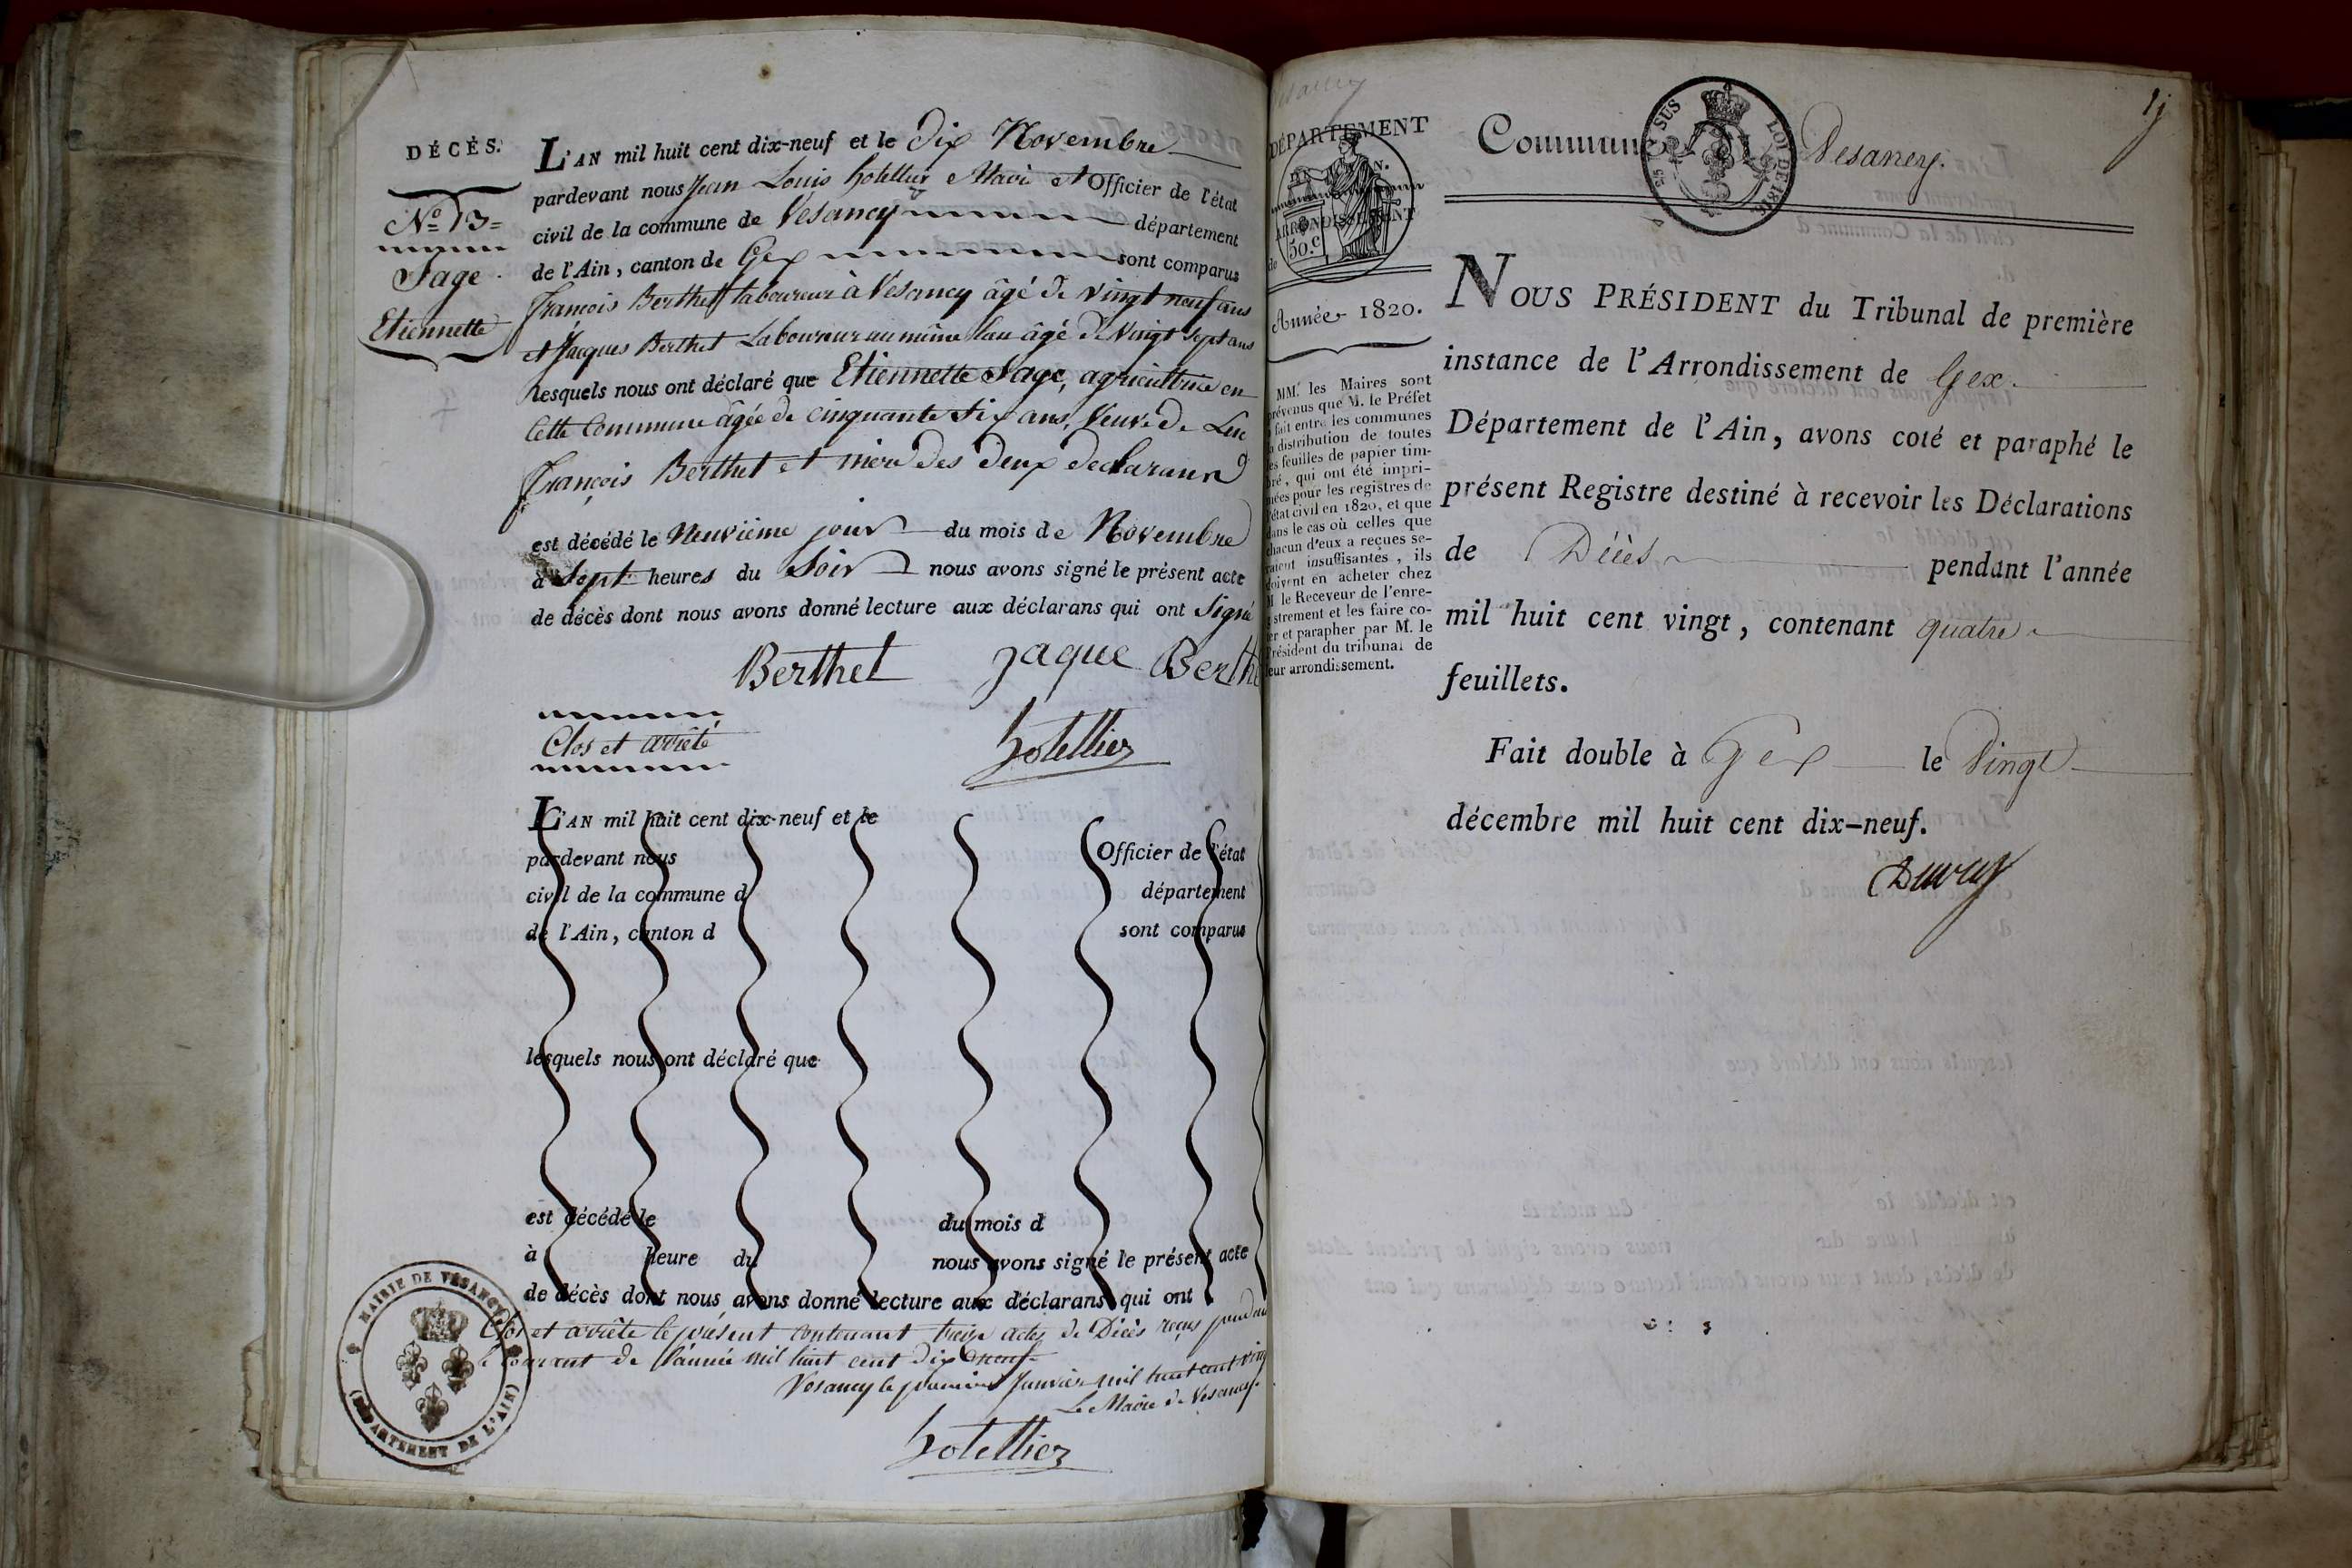 DÉCÈS.
N.º 13=
Sage
Etiennette
L'AN mil huit cent dix-neuf et le Dix Novembre
pardevant nous Jean Louis hotellier Maire et Officier de l'état
civil de la commune de Vesancy département
de l'Ain, canton de Gex sont comparus
françois Berthet laboureur à Vesancy âgé de vingt neuf ans
et Jacques Berthet Laboureur au même lieu âgé de Vingt Sept ans
lesquels nous ont déclaré que Etiennette Sage, agricultrice en
Cette Commune âgée de cinquante Six ans, Veuve de Luc
françois Berthet et mère des deux declarans
est décédé le Neuvième jour du mois de Novembre
à Sept heures du Soir nous avons signé le présent acte
de décès dont nous avons donné lecture aux déclarans qui ont Signé
Berthet jaque Berthe
Clos et arrêté
hotellier
L'AN mil huit cent dix-neuf et le
pardevant nous Officier de l'état
civil de la commune d département
de l'Ain, canton d sont comparus
lesquels nous ont déclaré que
est décédé le du mois d
à heure du nous avons signé le présent acte
de décès dont nous avons donné lecture aux déclarans qui ont
Clos et arrête le présent contenant treize actes de Décès reçus pendant
le courant de l'année mil huit cent dix neuf
Vesancy le premier Janvier mil huit cent vingt
Le Maire de Vesancy.
hotellier
MAIRIE DE VÉSANCY
(DÉPARTEMENT DE L'AIN)
DÉPARTEMENT
ARRONDISSEMENT
50.c
de
Année 1820.
MM. les Maires sont
prévenus que M. le Préfet
a fait entre les communes
la distribution de toutes
les feuilles de papier tim-
bré, qui ont été impri-
mées pour les registres de
l'état civil en 1820, et que
dans le cas où celles que
chacun d'eux a reçues se-
raient insuffisantes, ils
doivent en acheter chez
M. le Receveur de l'enre-
gistrement et les faire co-
ter et parapher par M. le
Président du tribunal de
leur arrondissement.
Commune Vesancy.
SUS LOI DE 1816
NOUS PRÉSIDENT du Tribunal de première
instance de l'Arrondissement de Gex.
Département de l'Ain, avons coté et paraphé le
présent Registre destiné à recevoir les Déclarations
de Décès pendant l'année
mil huit cent vingt, contenant quatre
feuillets.
Fait double à Gex le Vingt
décembre mil huit cent dix-neuf.